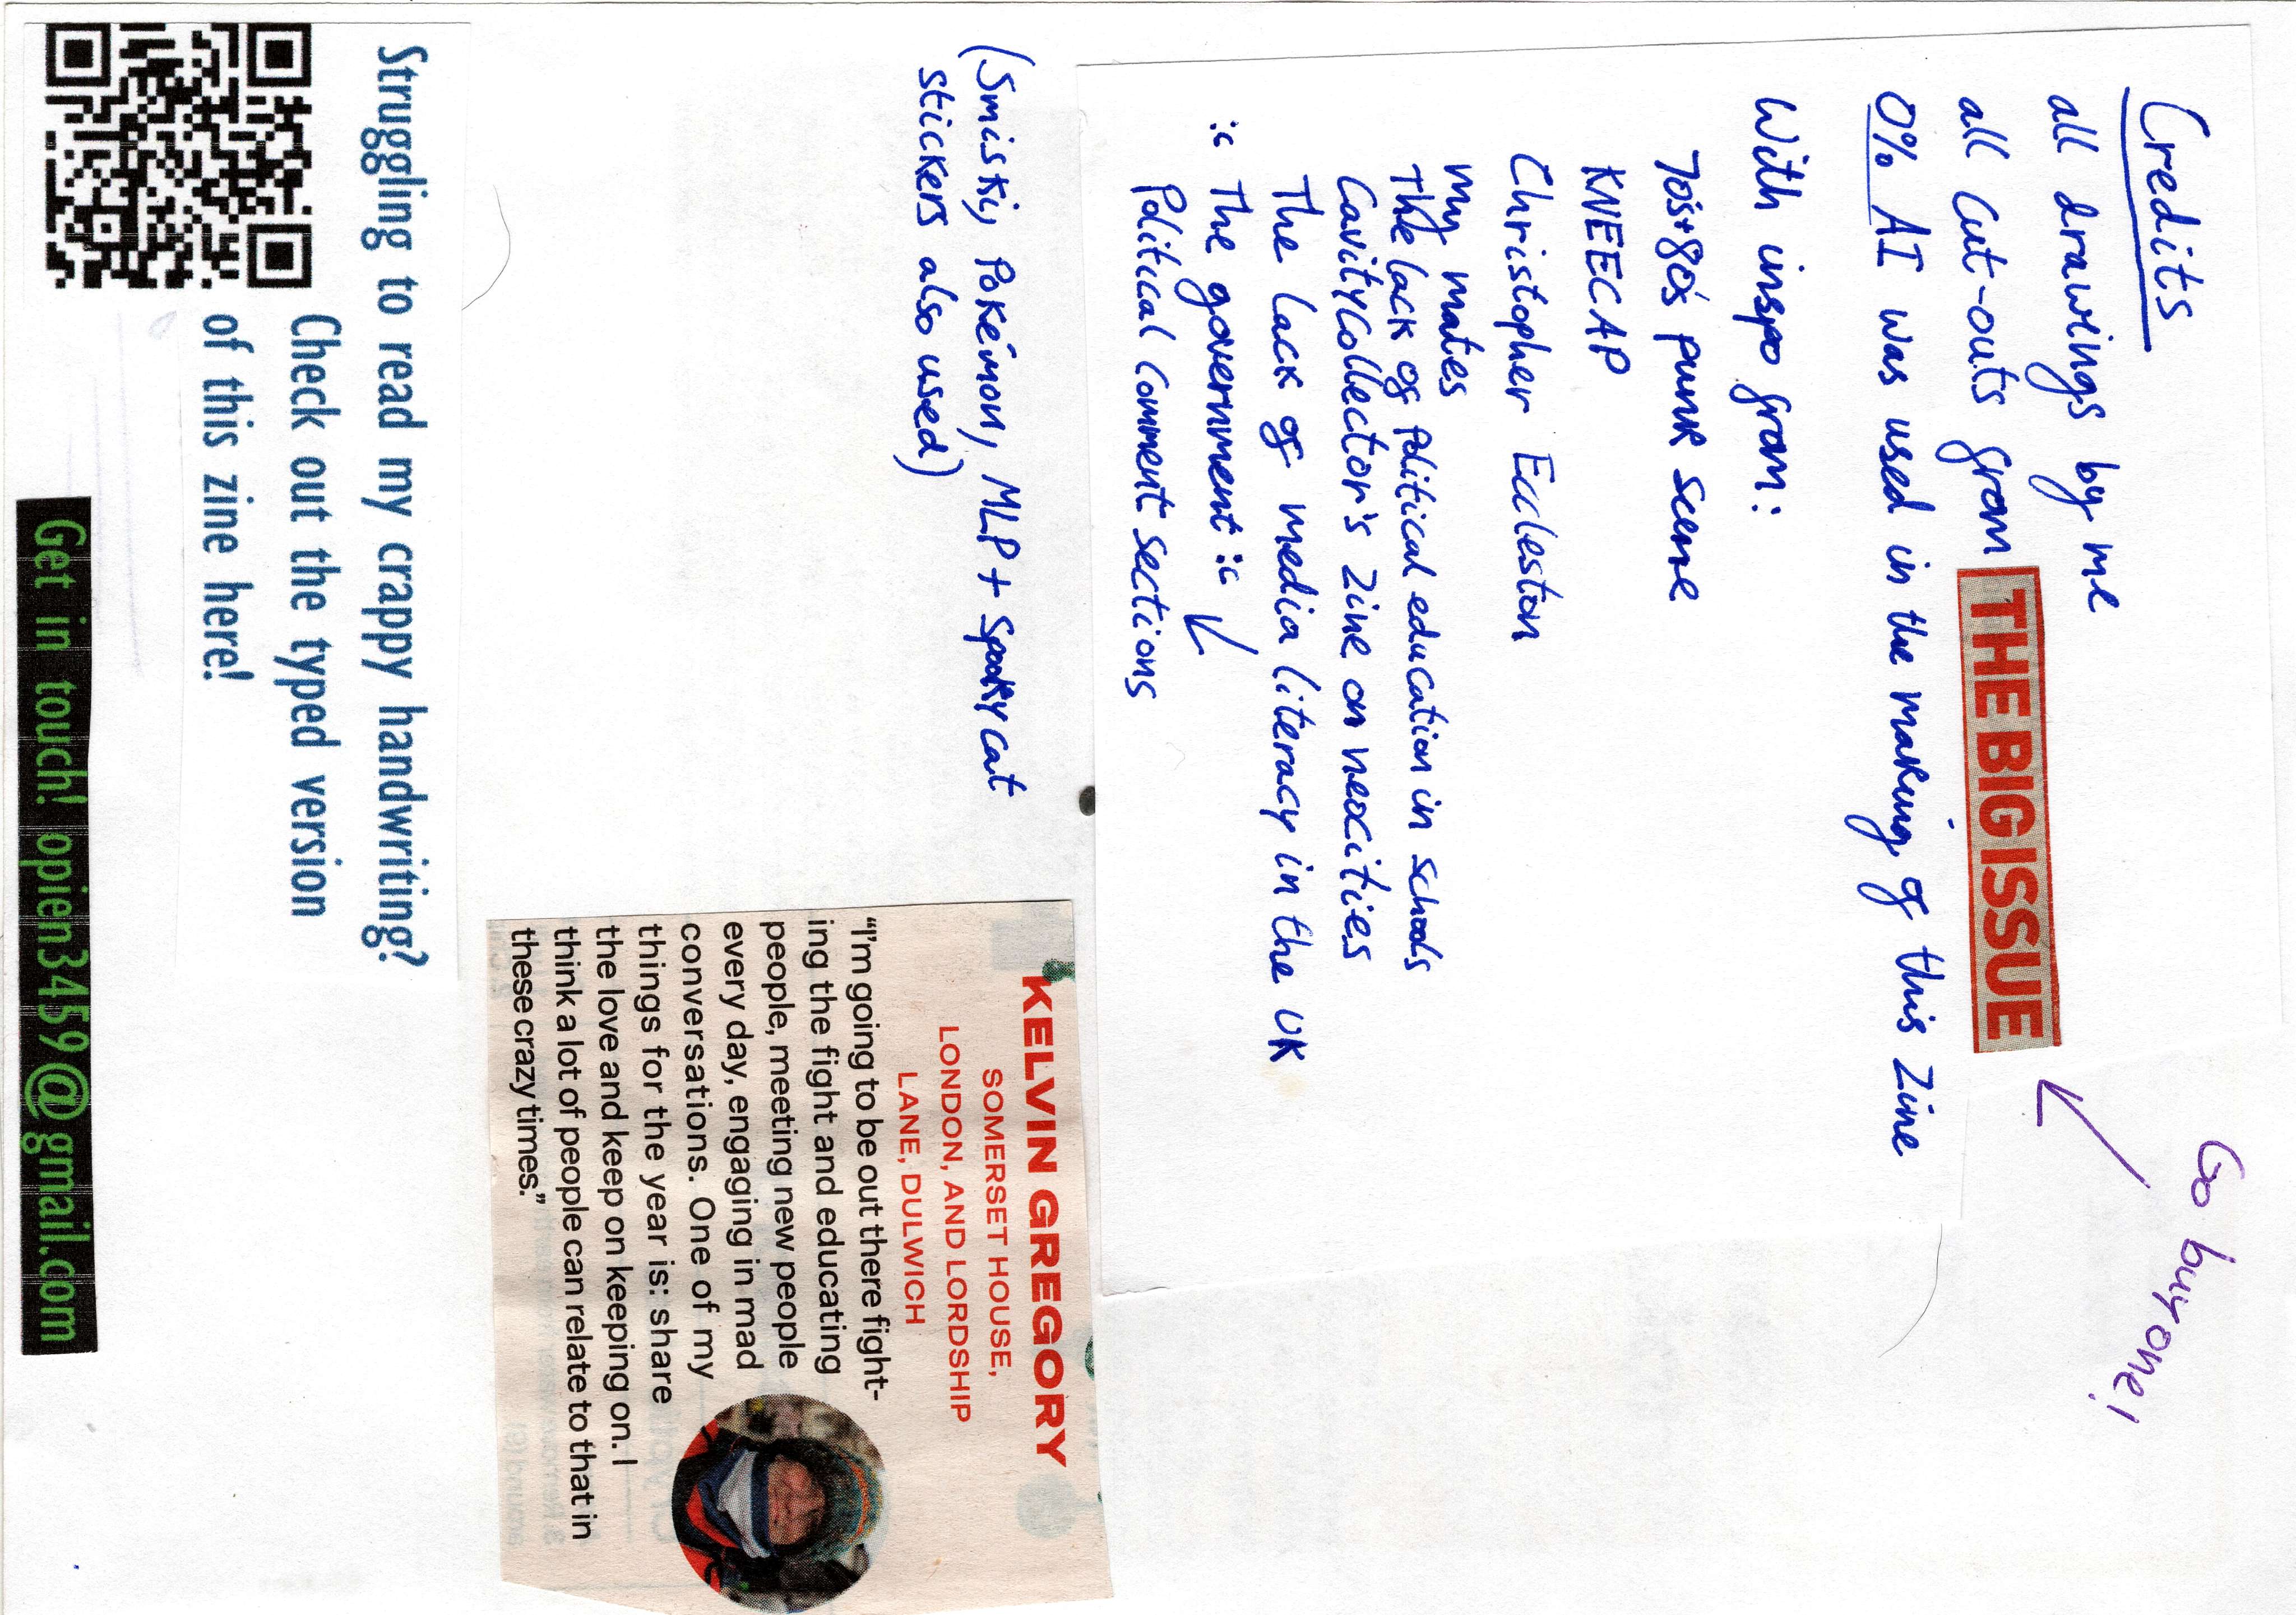 Credits
all drawings by me
all cut-outs from THE BIG ISSUE
Go buy one!
0% AI was used in the making of this Zine
With inspo from:
70s+80s punk scene
KNEECAP
Christopher Eccleston
my mates
The lack of political education in schools
CavityCollector's Zine on neocities
The lack of media literacy in the UK
:c The government :c
Political comment sections
(Smiski, Pokémon, MLP + Spooky cat
stickers also used)
KELVIN GREGORY
SOMERSET HOUSE,
LONDON, AND LORDSHIP
LANE, DULWICH
“I’m going to be out there fight-
ing the fight and educating
people, meeting new people
every day, engaging in mad
conversations. One of my
things for the year is: share
the love and keep on keeping on. I
think a lot of people can relate to that in
these crazy times.”
Struggling to read my crappy handwriting?
Check out the typed version
of this zine here!
Get in touch! opien3459@gmail.com